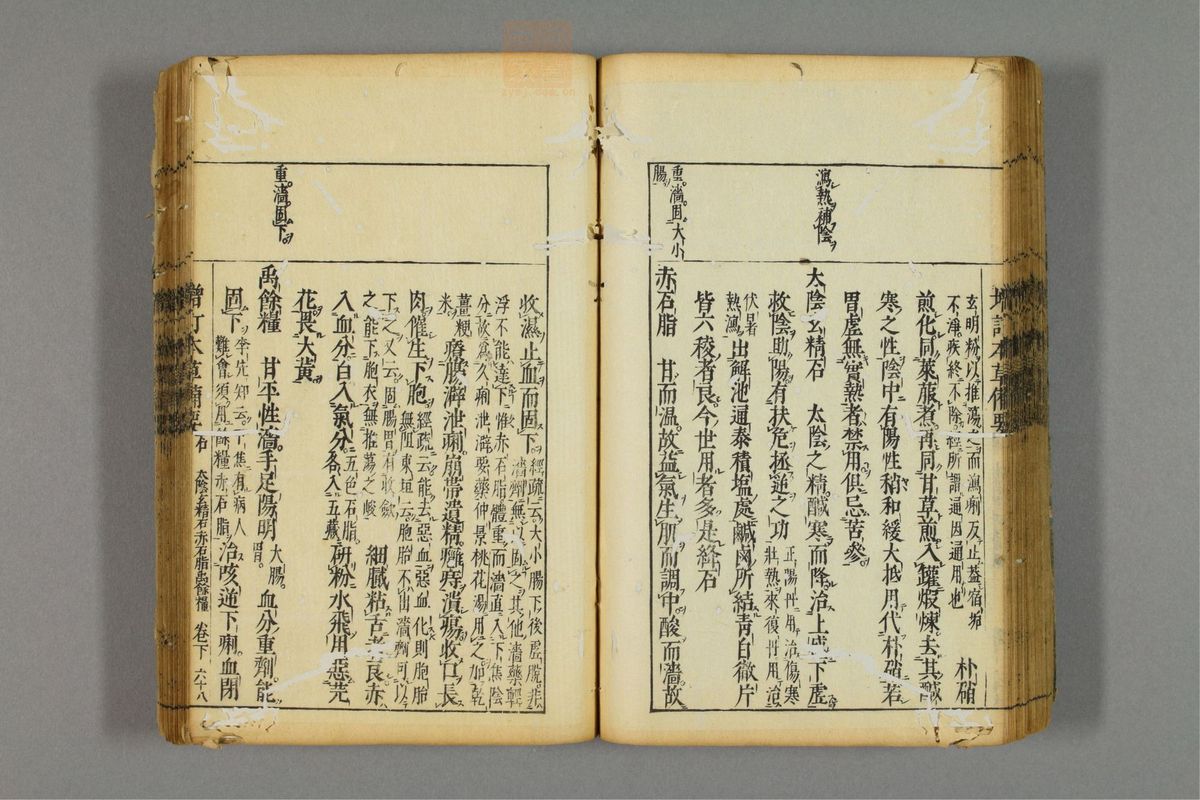 瀉熱補陰
重濇固大小
腸
玄明粉以推蕩之而瀉痢反止蓋宿垢
不淨疾終不除經所謂通因通用也
朴硝
煎化同萊菔煮再同甘草煎入罐煅煉去其鹹
寒之性陰中有陽性稍和緩大抵用代朴硝若
胃虛無實熱者禁用俱忌苦參
太陰玄精石 太陰之精鹹寒而降治上盛下虛
救陰助陽有扶危拯逆之功
正陽丹用治傷寒
壯熱來復丹用治
伏暑
熱瀉
出解池通泰積塩處鹹鹵所結青白微片
皆六稜者良今世用者多是絳石
赤石脂 甘而温故益氣生肌而調中酸而濇故
重濇固下
收濕止血而固下
經疏云大小腸下後虛脫非
濇劑無以固之其他濇藥輕
浮不能達下惟赤石脂體重而濇直入下焦陰
分故爲久痢泄澼要藥仲景桃花湯用之加乾
薑粳
米
療腸澼泄痢崩帶遺精癰痔潰瘍收口長
肉催生下胞
經疏云能去惡血惡血化則胞胎
無阻東垣云胞胎不出濇劑可以
下之又云固腸胃有收斂
之能下胞衣無推蕩之峻
細膩粘舌者良赤
入血分白入氣分
五色石脂
各入五藏
研粉水飛用惡芫
花畏大黄
禹餘糧 甘平性濇手足陽明
大腸
胃
血分重劑能
固下
李先知云下焦有病人
難會須用餘糧赤石脂
治咳逆下痢血閉
石 太陰玄精石赤石脂禹餘糧 卷下 六十八